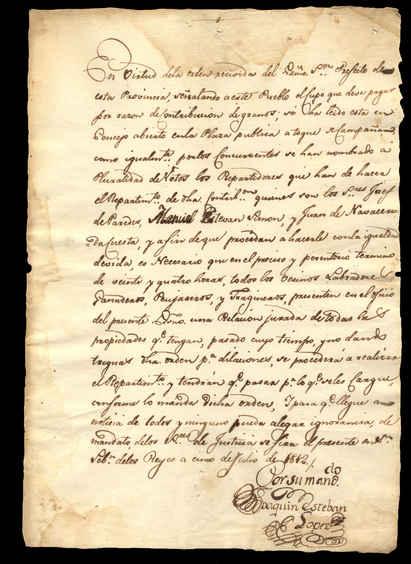 Por Virtud dela orden recivida del Exmo. Sr. Prefeto de
esta Provincia, señalando a este Pueblo el cupo que deve pagar
por razon de contribucion de granos, se ha leido esta en
Concejo abierto en la Plaza publica a toque de Campana,
como igualmte. por los Concurrentes se han nombrado a
Pluralidad de Votos los Repartidores que han de hacer
el Repartimto. de dha Contribon. quienes son los Sres. Josef
de Paredes, Manuel Estevan Simon, y Juan de Navacerra
da Cuesta; y a fin de que procedan a hacerle con la igualdad
devida, es Necesario que en el preciso y perentorio termino
de veinte y quatro horas, todos los vecinos Labradores
Ganaderos, y Tragineros, presenten en el oficio
del presente Esno. una Relacion jurada de todas las
propiedades qe. tengan, pasado cuyo tiempo, y no dando
treguas dha orden pa. dilaciones, se procederá a realizar
el Repartimto. y tendrán qe. pasar pr. lo qe. se les Cargue,
conforme lo manda dicha orden, Y para qe. llegue a
noticia de todos y ninguno pueda alegar ignorancia, de
mandato delos Sres. de Justicia se fixa el presente en Sn.
Sebn. delos Reyes a cinco de Julio de 1812
Por su mando.
Joaquin Esteban
Lopez